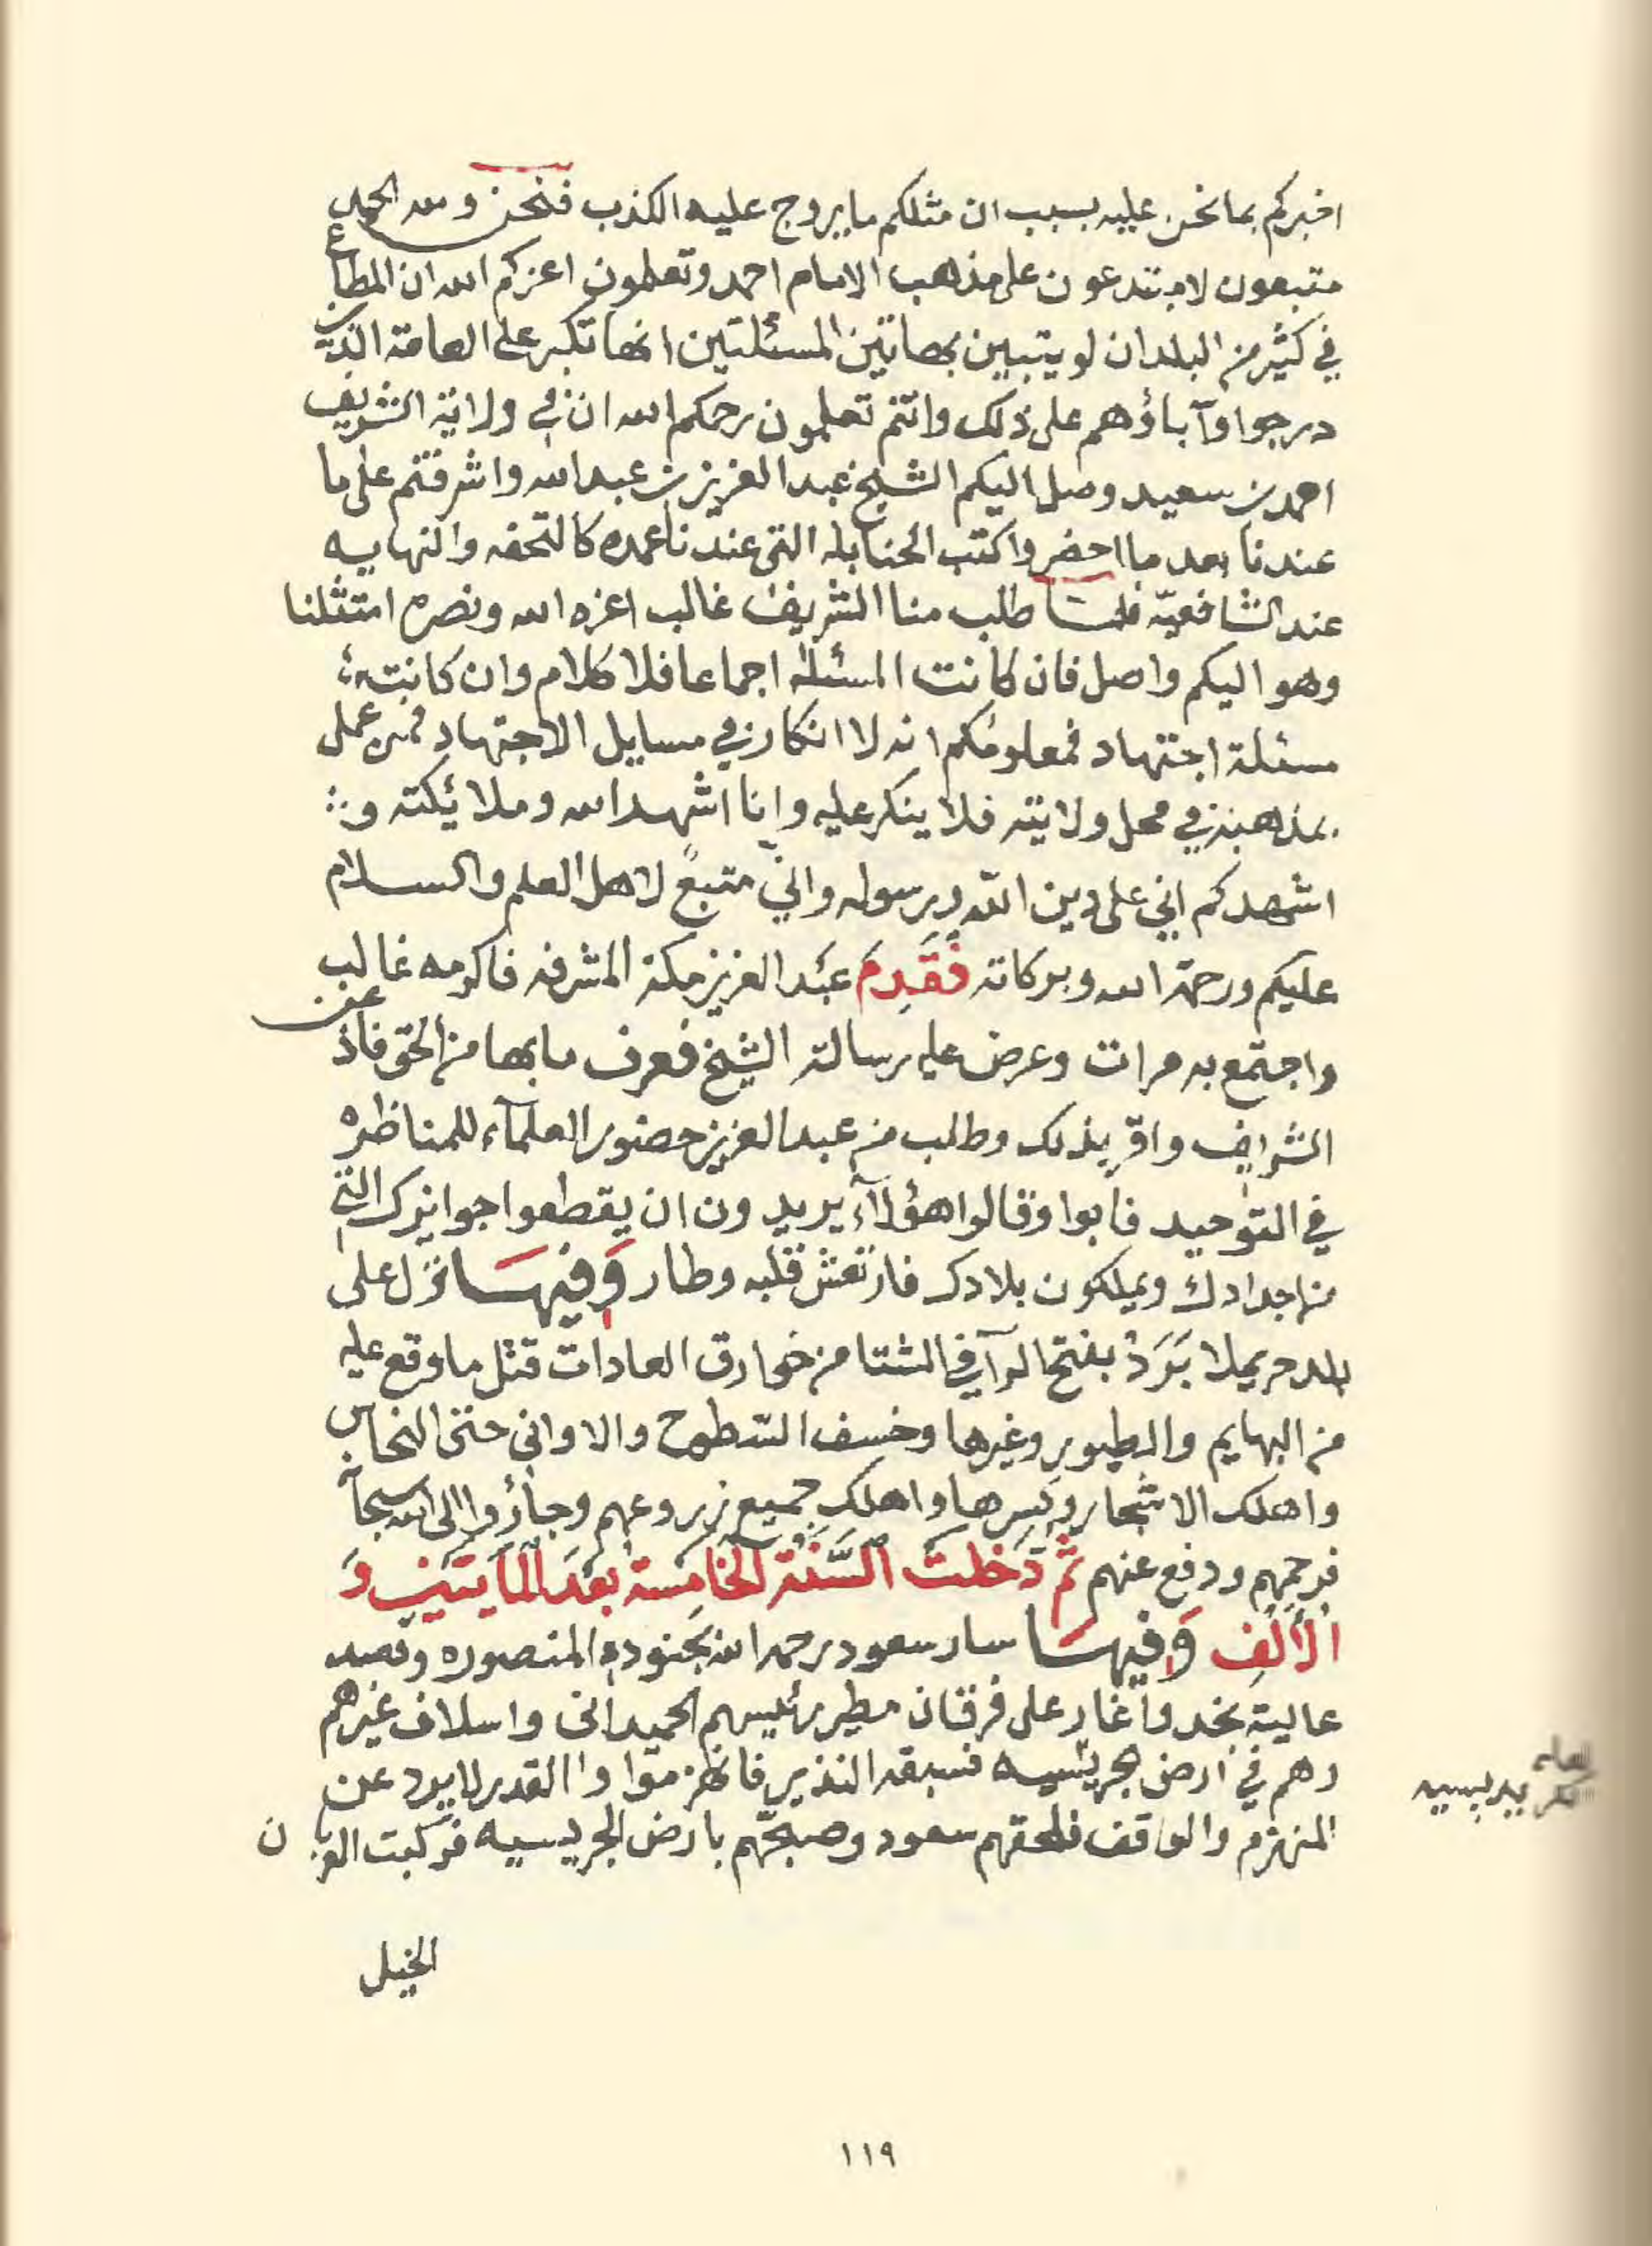 اخبركم بما نحن عليه بسبب ان مثلكم ما يروج عليه الكذب فنحن ولله الحمد
متبعون لا مبتدعون على مذهب الامام احمد وتعلمون اعزكم الله ان المطاع
في كثير من البلدان لو يتبين بهاتين المسئلتين انها تكبر على العامة الذين
درجوا وآباؤهم على ذلك وانتم تعلمون رحمكم الله ان في ولاية الشريف
احمد بن سعيد وصل اليكم الشيخ عبد العزيز بن عبد الله واشرفتم على ما
عندنا بعد ما احضروا كتب الحنابله التي عندنا عمده كالتحفه والنهايه
عند الشافعيّه فلمّا طلب منا الشريف غالب اعزه الله ونصره امتثلنا
وهو اليكم واصل فان كانت المسئلة اجماعا فلا كلام وان كانت
مسئلة اجتهاد فمعلومكم انه لا انكار في مسايل الاجتهاد فمن عمل
بمذهبه في محل ولايته فلا ينكر عليه وانا اشهد الله وملائكته و
اشهدكم اني على دين الله ورسوله واني متبعٌ لاهل العلم والسلام
عليكم ورحمة الله وبركاته فَقَدِمَ عبد العزيز مكة المشرفه فاكرمه غالب
واجتمع به مرات وعرض عليه رسالة الشيخ فعرف ما بها من الحق فاذعن
الشريف واقر بذلك وطلب من عبد العزيز حضور العلمآء للمناظره
في التوحيد فابوا وقالوا هؤلآء يريدون ان يقطعوا جوايزك التي
من اجدادك ويملكون بلادك فارتعش قلبه وطار وَفيهَا نزل على
بلد حريملا بَرَدٌ بفتح الرآ في الشتا من خوارق العادات قتل ما وقع عليه
من البهايم والطيور وغيرها وخسف السّطوح والاواني حتى النحاس
واهلك الاشجار وكسرها واهلك جميع زروعهم وجأروا الى الله سبحانه
فرحمهم ودفع عنهم ثمّ دَخَلتْ السَّنَة الخامسة بعدَ المايتين وَ
الألفِ وَفيهَا سار سعود رحمه الله بجنوده المنصوره وقصد
عالية نجد وأغار على فرقان مطير رئيسهم الحميداني واسلاف غيرهم
وهم في ارض جريسيه فسبقه النذير فانهزموا والقدر لا يرد عن
المنهزم والواقف فلحقهم سعود وصبحهم بارض الجريسيه فركبت العربان
الخيل
١١٩